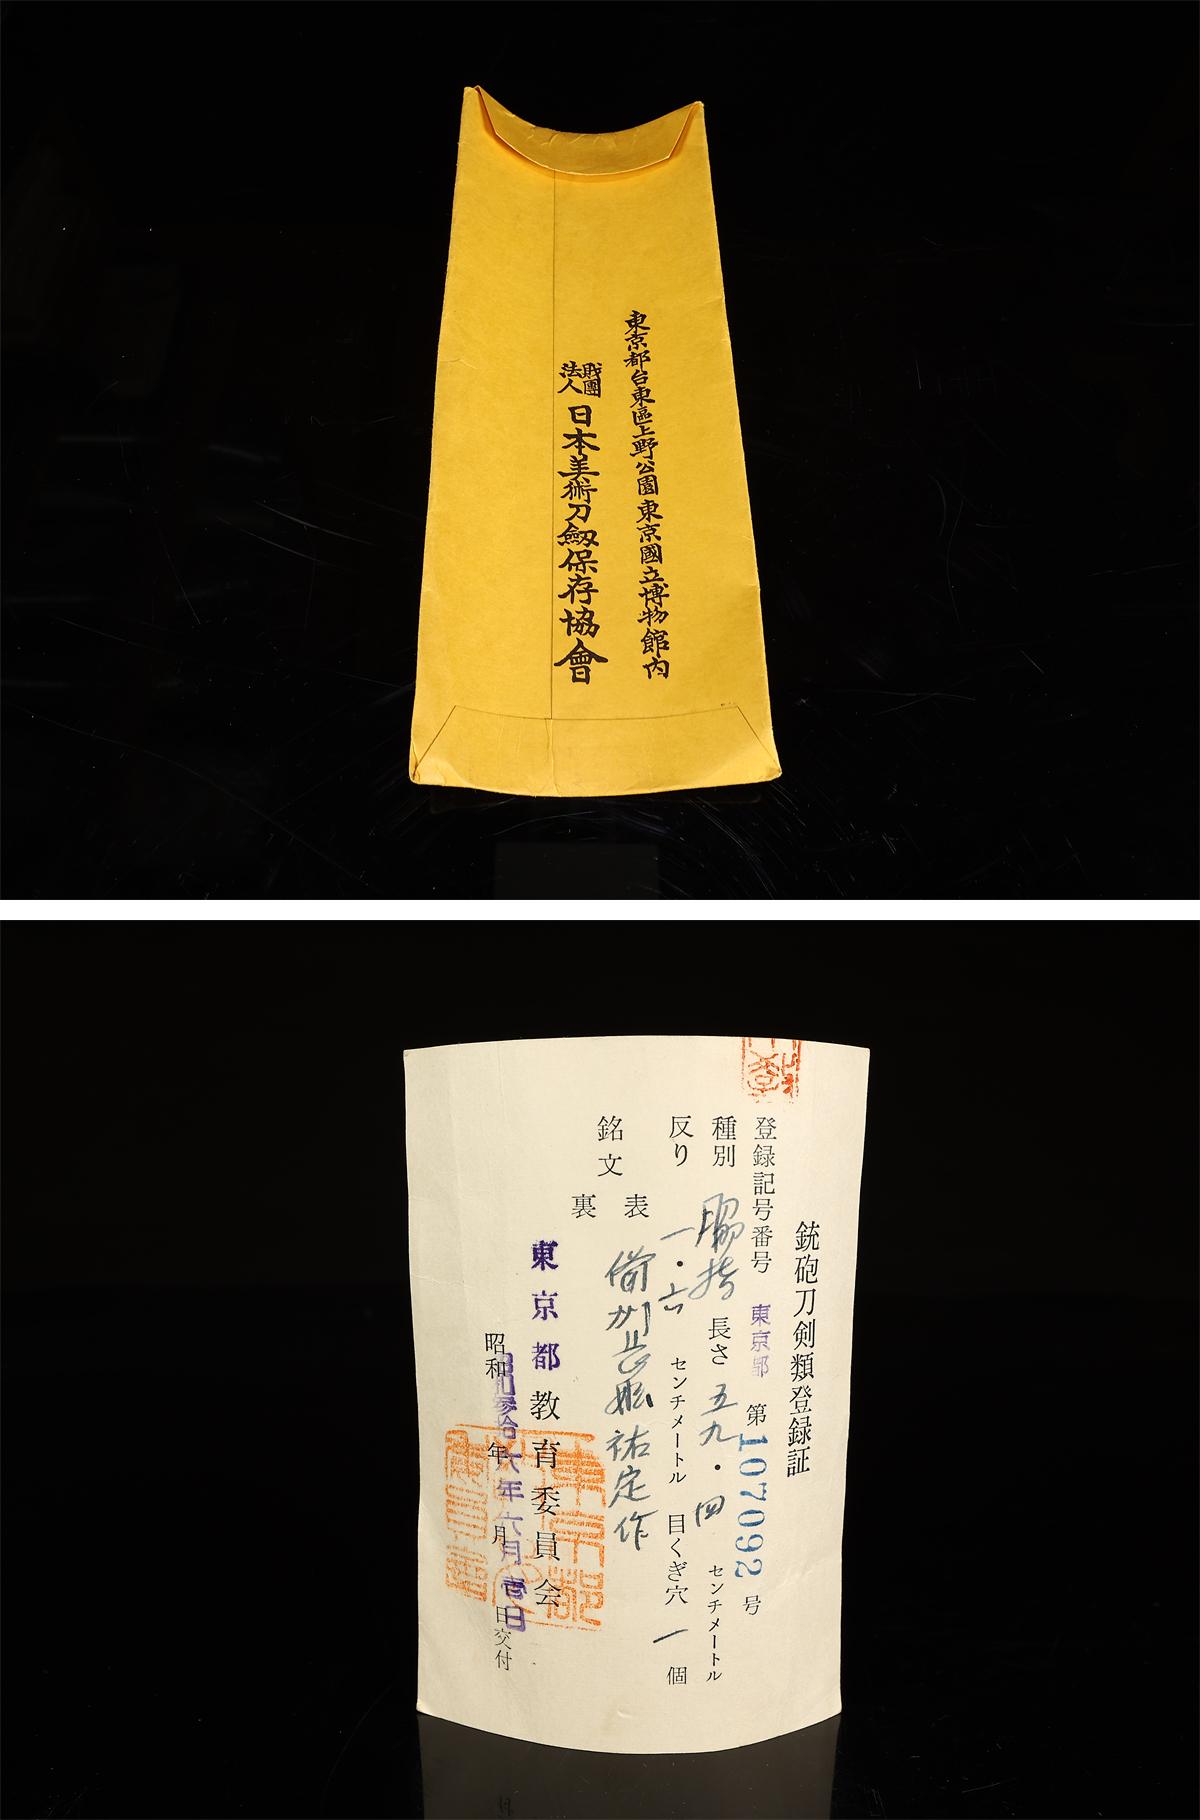 東京都台東區上野公園東京國立博物館内
財團法人日本美術刀劔保存協會
銃砲刀剣類登録証
登録記号番号 東京都 第107092号
種別 脇指 長さ 五九・四 センチメートル
反り 一・六 センチメートル 目くぎ穴 一 個
銘文 表 備州長船祐定作
裏
東京都教育委員会
昭和参拾六年六月壱日
昭和 年 月 日交付